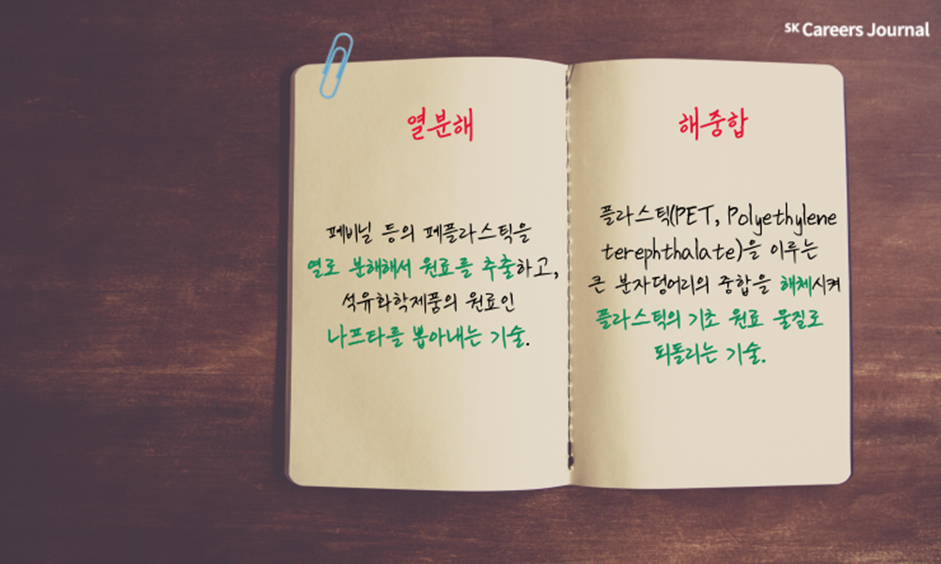 SK Careers Journal
열분해
폐비닐 등의 폐플라스틱을
열로 분해해서 원료를 추출하고,
석유화학제품의 원료인
나프타를 뽑아내는 기술.
해중합
플라스틱(PET, Polyethylene
terephthalate)을 이루는
큰 분자덩어리의 중합을 해체시켜
플라스틱의 기초 원료 물질로
되돌리는 기술.